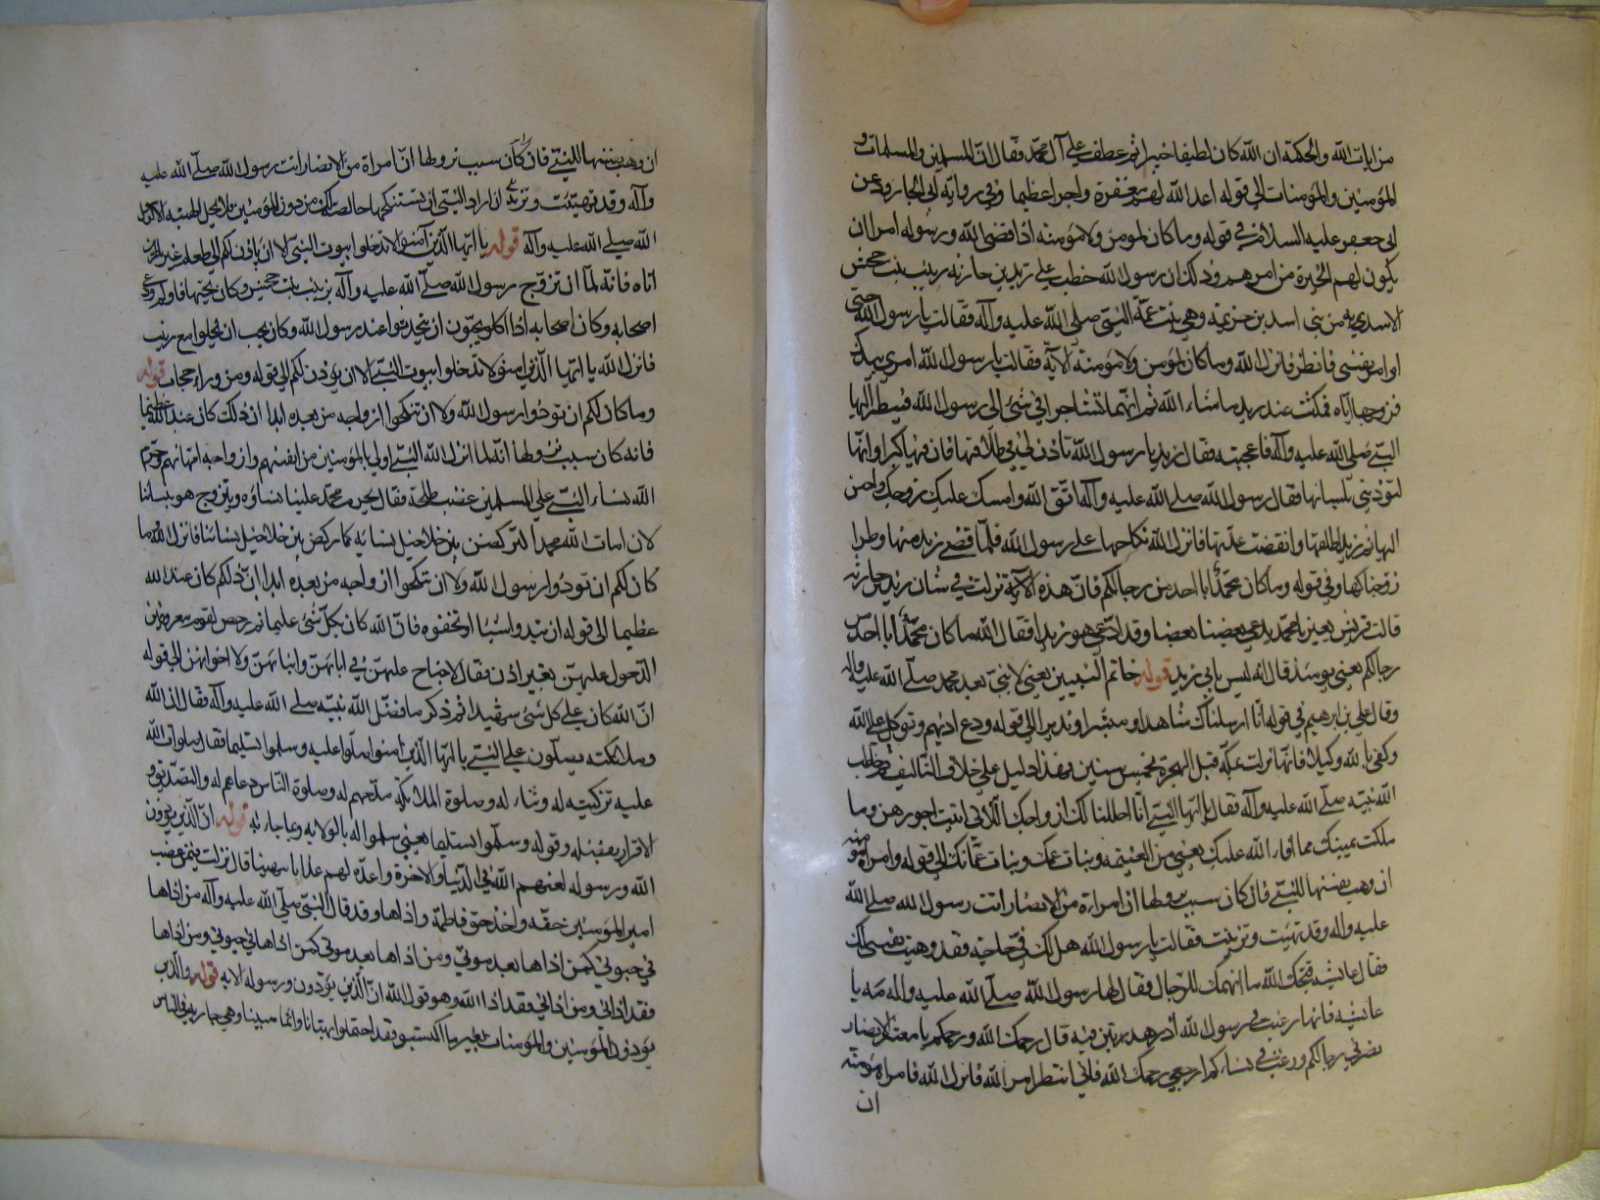 من ايات الله والحكمة ان الله كان لطيفا خبيرا ثم عطف على آل محمد فقال ان المسلمين والمسلمات و
المؤمنين والمؤمنات الى قوله اعد الله لهم مغفرة واجرا عظيما وفي رواية ابى الجارود عن
ابى جعفر عليه السلام في قوله وما كان لمؤمن ولا مؤمنة اذا قضى الله ورسوله امرا ان
يكون لهم الخيرة من امرهم وذلك ان رسول الله خطب على زيد بن حارثه زينب بنت جحش
الاسديه من بنى اسد بن خزيمة وهي بنت عمة النبي صلى الله عليه وآله فقالت يا رسول الله حتى
اوامر نفسى فانظر فانزل الله وما كان لمؤمن ولا مؤمنة الآية فقالت يا رسول الله امرى بيدك
فزوجها اياه فمكثت عند زيد ما شاء الله ثم انهما تشاجرا في شئ الى رسول الله فنظر اليها
النبي صلى الله عليه وآله فاعجبته فقال زيد يا رسول الله تأذن لى في طلاقها فان فيها كبرا وانها
لتؤذينى بلسانها فقال رسول الله صلى الله عليه وآله اتق الله وامسك عليك زوجك واحسن
اليها ثم زيد طلقها وانقضت عدتها فانزل الله نكاحها على رسول الله فلما قضى زيد منها وطرا
زوجناكها وفي قوله وما كان محمد ابا احد من رجالكم فان هذه الآية نزلت في شان زيد بن حارثه
قالت قريش يعيرنا محمد يدعى بعضنا بعضا وقد ادعى هو زيدا فقال الله ما كان محمد ابا احد من
رجالكم يعنى يومئذ قال انه ليس بابى زيد قوله خاتم النبيين يعنى لا نبي بعد محمد صلى الله عليه واله
وقال على بن ابرهيم في قوله انا ارسلناك شاهدا ومبشرا ونذيرا الى قوله ودع اذيهم وتوكل على الله
وكفى بالله وكيلا فانها نزلت بمكه قبل الهجرة بخمس سنين فهذا دليل على خلاف التاليف ثم خاطب
الله نبيه صلى الله عليه وآله فقال يا ايها النبي انا احللنا لك ازواجك اللاتى اتيت اجورهن وما
ملكت يمينك مما افاء الله عليك يعنى من الغنيمة وبنات عمك وبنات عماتك الى قوله وامراة مؤمنه
ان وهبت نفسها للنبي فان كان سبب نزولها ان امراة من الانصار اتت رسول الله صلى الله
عليه واله وقد تهيئت وتزينت فقالت يا رسول الله هل لك في حاجة فقد وهبت نفسى لك
فقال عايشه قبحك الله ما انهمك للرجال فقال لها رسول الله صلى الله عليه واله مه يا
عايشه فانها رغبت في رسول الله اذ زهدتن فيه قال رحمك الله ورحمكم يا معشر الانصار
نصرنى رجالكم ورغبت في نساءكم ارجعى رحمك الله فانى انتظر امر الله فانزل الله فامراة مؤمنة
ان
ان وهبت نفسها للنبي فان كان سبب نزولها ان امراة من الانصار اتت رسول الله صلى الله عليه
وآله وقد تهيئت وتزينت ان اراد النبي ان يستنكحها خالصة لك من دون المؤمنين فلا تحل الهبة الا لرسول
الله صلى الله عليه وآله قوله يا ايها الذين آمنوا لا تدخلوا بيوت النبي الا ان يؤذن لكم الى طعام غير ناظرين
اناه فانه لما ان تزوج رسول الله صلى الله عليه وآله بزينب بنت جحش وكان يحبها فاولم ودعى
اصحابه وكان اصحابه اذا اكلوا يحبون ان يتحدثوا عند رسول الله وكان يحب ان يخلوا مع زينب
فانزل الله يا ايها الذين امنوا لا تدخلوا بيوت النبي الا ان يؤذن لكم الى قوله ومن وراء حجاب قوله
وما كان لكم ان تؤذوا رسول الله ولا ان تنكحوا ازواجه من بعده ابدا ان ذلك كان عند الله عظيما
فانه كان سبب نزولها انه لما انزل الله النبي اولى بالمؤمنين من انفسهم وازواجه امهاتهم وحرم
الله نساء النبي على المسلمين غضب طلحة فقال يحرم محمد علينا نساؤه ويتزوج هو بنسائنا
لان امات الله محمدا لنركضن بين خلاخيل نسائه كما ركض بين خلاخيل نسائنا فانزل الله وما
كان لكم ان تؤذوا رسول الله ولا ان تنكحوا ازواجه من بعده ابدا ان ذلكم كان عند الله
عظيما الى قوله ان تبدوا شيئا او تخفوه فان الله كان بكل شئ عليما ثم رخص لقوم معروفين
الدخول عليهن بغير اذن فقال لا جناح عليهن في ابائهن وابنائهن ولا اخوانهن الى قوله
ان الله كان على كل شئ شهيدا ثم ذكر ما فضل الله نبيه صلى الله عليه وآله فقال ان الله
وملائكته يصلون على النبي يا ايها الذين امنوا صلوا عليه وسلموا تسليما فقال صلوات الله
عليه تزكيته له وثناء له وصلوة الملائكة مدحهم له وصلوة الناس دعاءهم له والتصديق و
الاقرار بفضله وقوله وسلموا تسليما يعنى سلموا له بالولاية وبما جاء به قوله ان الذين يؤذون
الله ورسوله لعنهم الله في الدنيا والاخرة واعد لهم عذابا مهينا قال نزلت فيمن غصب
امير المؤمنين حقه واخذ حق فاطمه واذاها وقد قال النبي صلى الله عليه وآله من اذاها
في حيوتى كمن اذاها بعد موتى ومن اذاها بعد موتى كمن اذاها في حيوتى ومن اذاها
فقد اذانى ومن اذانى فقد اذا الله وهو قول الله ان الذين يؤذون الله ورسوله الاية قوله والذين
يؤذون المؤمنين والمؤمنات بغير ما اكتسبوا فقد احتملوا بهتانا واثما مبينا وهي جارية في الناس